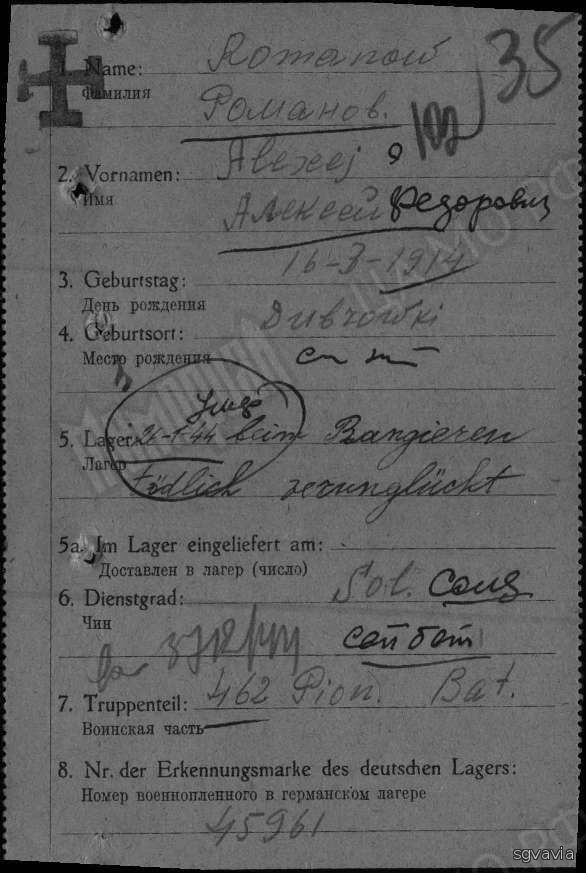 35
1. Name: Romanow
Фамилия
Романов.
2. Vornamen: Alexej
Имя
Алексей Федорович
16-3-1914
3. Geburtstag:
День рождения
Dubrowki
4. Geburtsort:
Место рождения
5. Lager: 26-1-44 beim Rangieren
Лагер
tödlich verunglückt
5a. Im Lager eingeliefert am:
Доставлен в лагер (число)
6. Dienstgrad: Sol.
Чин
сапбат
7. Truppenteil: 462 Pion. Bat.
Воинская часть
8. Nr. der Erkennungsmarke des deutschen Lagers:
Номер военнопленного в германском лагере
45961
sgvavia